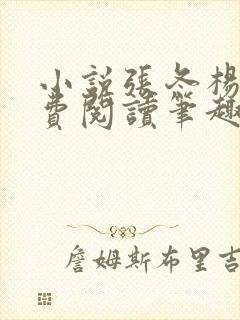 小説張冬楊
費閱讀筆趣
詹姆斯布里吉